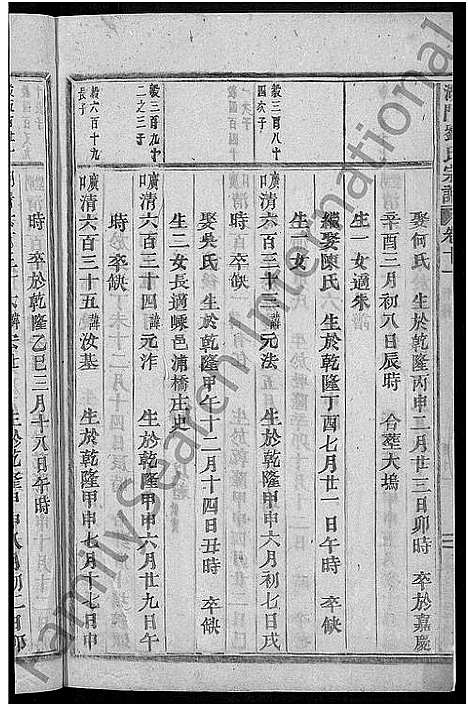 劉氏宗譜 卷十一
娶何氏 生於乾隆丙申二月廿三日卯時 卒於嘉慶
辛酉三月初八日辰時 合塟大塢
生一女適朱
續娶陳氏 生於乾隆丁酉七月廿一日午時 卒缺
生一女
毅三百八十四次子
廣清六百三十三 諱元法 生於乾隆甲申六月初七日戌
時 卒缺
娶吳氏 生於乾隆甲午十二月十四日丑時 卒缺
生二女長適嵊邑浦橋庄史
毅三百九十二之三子
廣清六百三十四 諱元泎 生於乾隆甲申六月廿九日午
時 卒缺
毅六百十九長子
廣清六百三十五 諱汝基 生於乾隆甲申七月十七日申
時 卒於乾隆乙巳三月十八日午時
生於乾隆甲申八月初二日卯
FamilySearch International